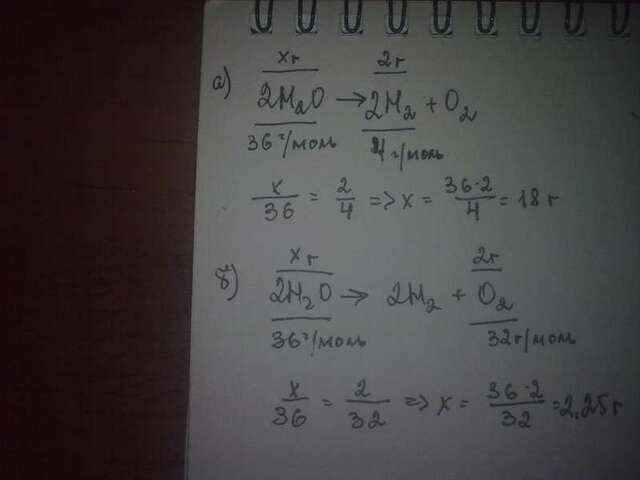 а) xг 2г
2H₂O → 2H₂ + O₂
36 г/моль 4 г/моль
x/36 = 2/4 => x = 36·2/4 = 18 г
б) xг 2г
2H₂O → 2H₂ + O₂
36 г/моль 32 г/моль
x/36 = 2/32 => x = 36·2/32 = 2,25 г